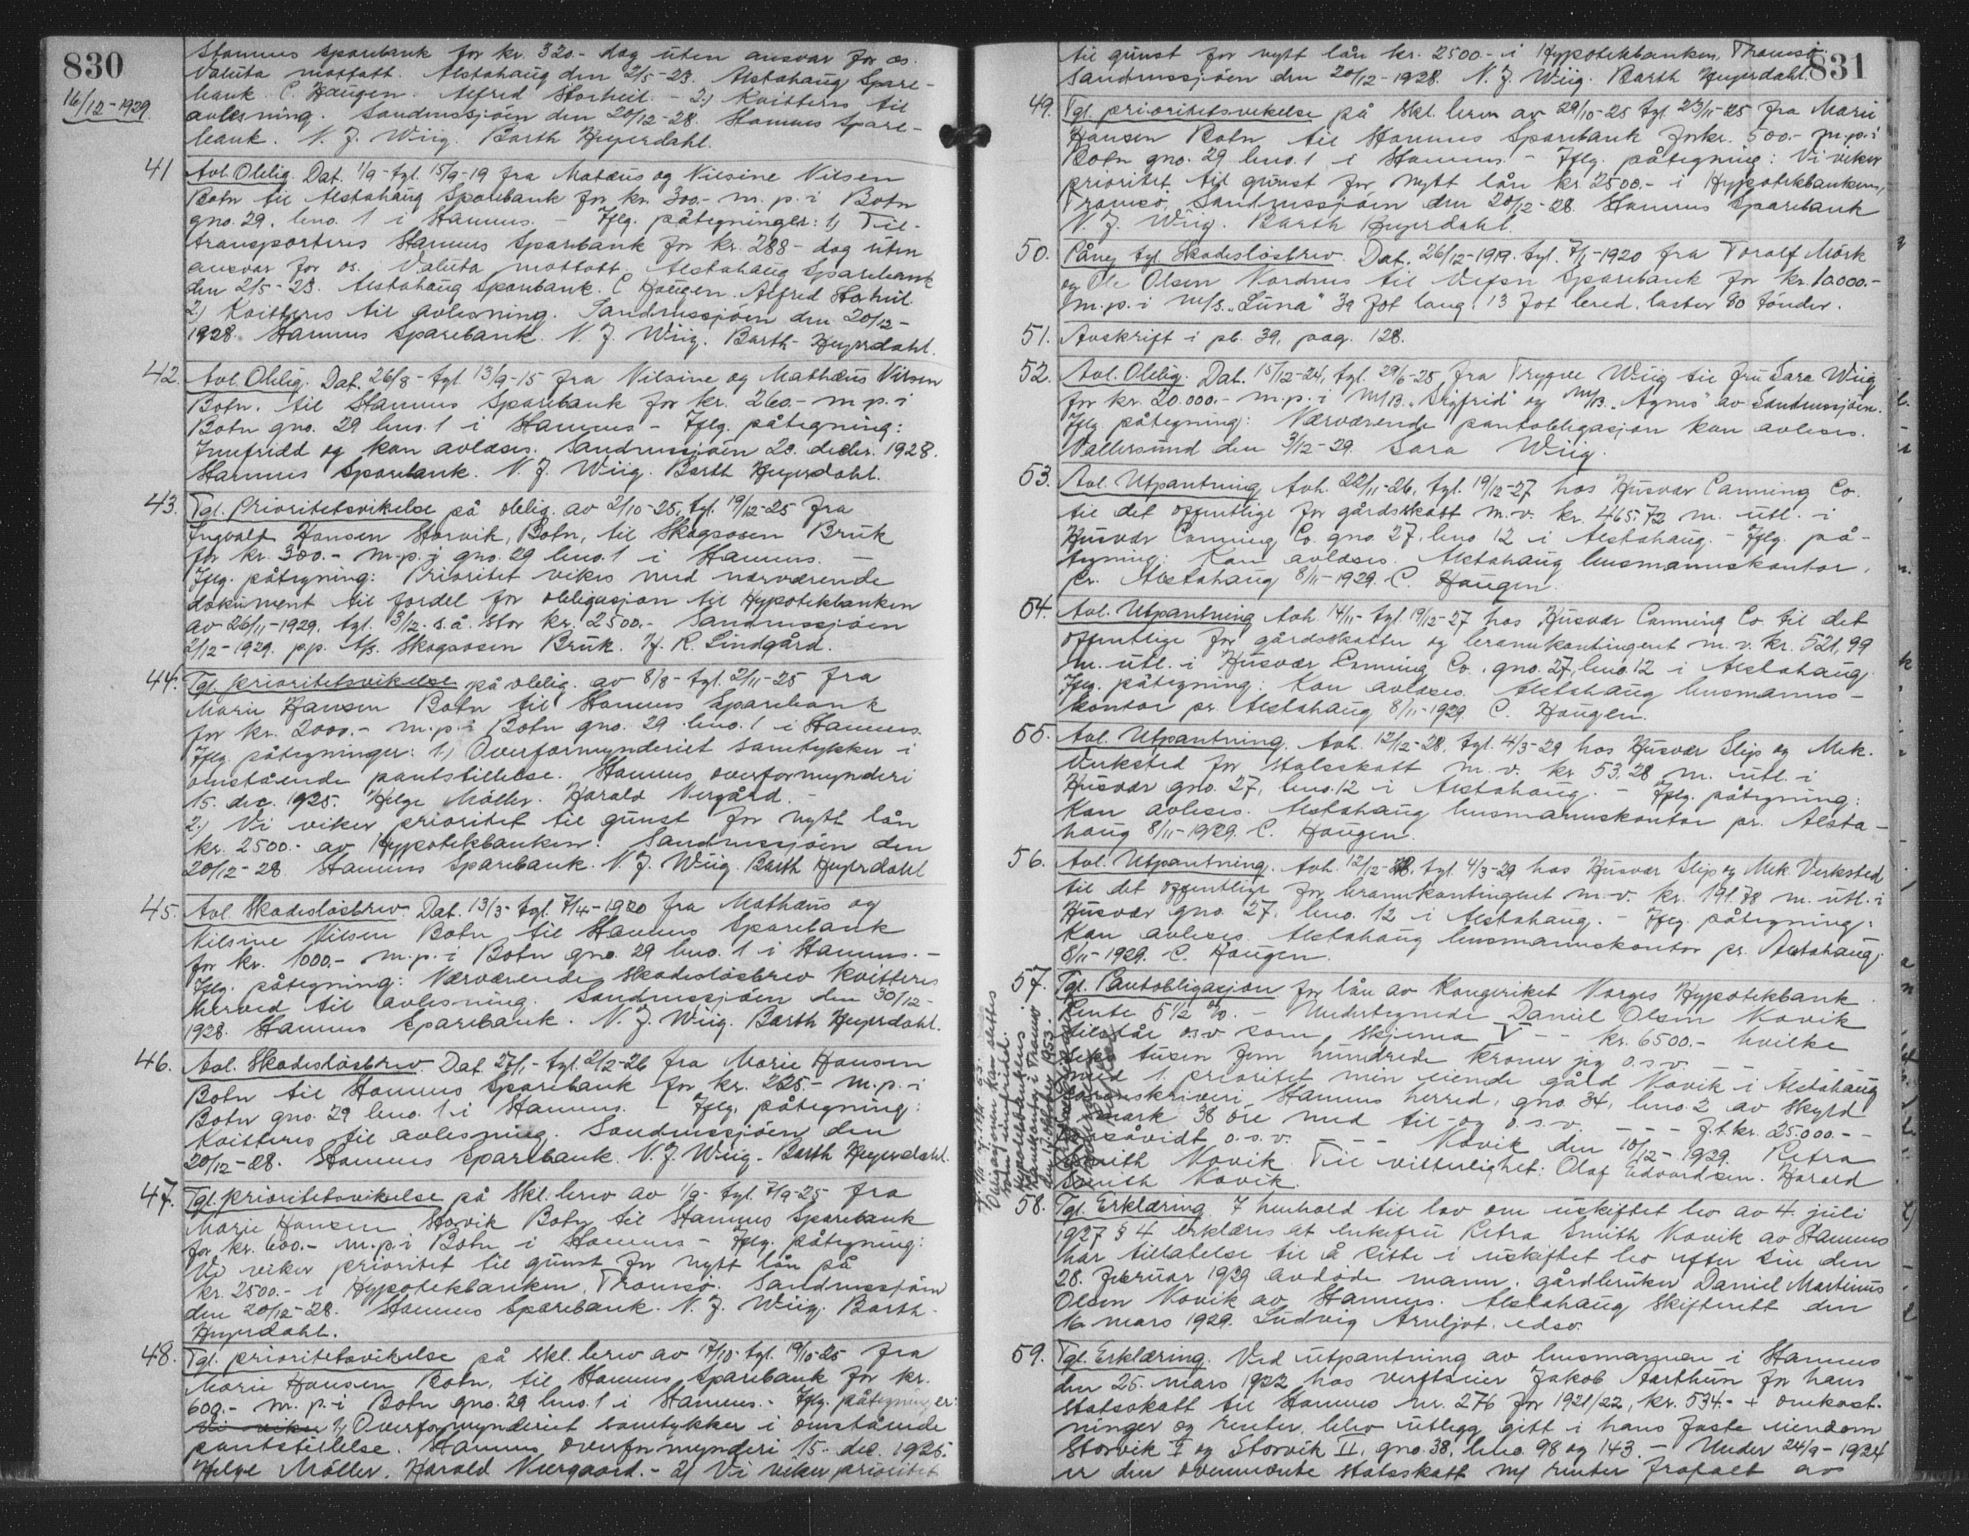 830
16/12-1929.
Stamnes Sparebank for kr. 320.- dog uten ansvar for os.
Valuta mottatt. Alstahaug den 2/5-23. Alstahaug Spare-
bank. C. Haugen. Alfred Storheil. - 2) Kvitteres til
avlesning. Sandnessjöen den 20/12-28. Stamnes Spare-
bank. N. J. Wiig. Barth Heyerdahl.
41 Avl. Oblig. Dat. 1/9- tgl. 15/9-19 fra Matæus og Nilsine Nilsen
Botn til Alstahaug Sparebank for kr. 300.- m. p. i Botn
gno. 29. bno. 1 i Stamnes. - Iflg. påtegninger: 1) Til-
transporteres Stamnes Sparebank for kr. 288.- dog uten
ansvar for os. Valuta mottatt. Alstahaug Sparebank
den 2/5-23. Alstahaug Sparebank. C Haugen. Alfred Storheil.
2) Kvitteres til avlesning. Sandnessjöen den 20/12-
1928. Stamnes Sparebank. N. J. Wiig. Barth Heyerdahl.
42. Avl. Oblig. Dat. 26/8- tgl. 13/9-15 fra Nilsine og Mathæus Nilsen
Botn. til Stamnes Sparebank for kr. 260.- m p. i
Botn gno. 29 bno. 1 i Stamnes - Iflg. påtegning:
Innfridd og kan avlæses. Sandnessjöen 20. decbr. 1928.
Stamnes Sparebank. N. J. Wiig. Barth Heyerdahl.
43. Tgl. Prioritetsvikelse på oblig. av 2/10-25, tgl. 19/12-25 fra
Ingvald Hansen Storvik, Botn, til Skogsosen Bruk
for kr. 300.- m. p. i gno. 29 bno. 1 i Stamnes. -
Iflg. påtegning: Prioritet vikes med nærværende
dokument til fordel for obligasjon til Hypotekbanken
av 26/11-1929, tgl. 3/12. s. å. stor kr. 2500.- Sandnessjöen
2/12-1929. p.p. A/S. Skogsosen Bruk. H. R. Lindgård.
44. Tgl. prioritetsvikelse på oblig. av 8/8- tgl. 2/11-25 fra
Marie Hansen Botn til Stamnes Sparebank
for kr. 2000.- m. p. i Botn gno. 29 bno. 1 i Stamnes.
Iflg. påtegninger: 1) Overformynderiet samtykker i
omstående pantstillelse. Stamnes overformynderi
15. dec. 1925. Helge Möller. Harald Nergård. -
2.) Vi viker prioritet til gunst for nytt lån
kr. 2500.- av Hypotekbanken. Sandnessjöen den
20/12-28 Stamnes Sparebank. N. J. Wiig. Barth Heyerdahl
45. Avl. Skadeslösbrev. Dat. 13/3- tgl. 7/4-1920 fra Mathæus og
Nilsine Nilsen Botn til Stamnes Sparebank
for kr. 1000.- m. p. i Botn gno. 29 bno. 1 i Stamnes. -
Iflg. påtegning: Nærværende skadeslösbrev kvitteres
herved til avlesning. Sandnessjöen den 30/12-
1928. Stamnes Sparebank. N. J. Wiig. Barth Heyerdahl.
46. Avl. Skadeslösbrev. Dat. 27/1- tgl. 2/2-26 fra Marie Hansen
Botn til Stamnes Sparebank for kr. 225.- m. p. i
Botn gno. 29 bno. 1 i Stamnes. - Iflg. påtegning:
Kvitteres til avlesning. Sandnessjöen den
20/12-28. Stamnes Sparebank. N. J. Wiig. Barth Heyerdahl.
47. Tgl. prioritetsvikelse på skl. brev av 1/9- tgl. 7/9-25 fra
Marie Hansen Storvik Botn til Stamnes Sparebank
for kr. 600.- m. p. i Botn i Stamnes - Iflg. påtegning:
Vi viker prioritet til gunst for nytt lån på
kr. 2500.- i Hypotekbanken, Tromsö. Sandnessjöen
den 20/12-28. Stamnes Sparebank. N. J. Wiig. Barth
Heyerdahl.
48. Tgl. prioritetsvikelse på skl. brev av 17/10- tgl. 19/10-25 fra
Marie Hansen Botn, til Stamnes Sparebank for kr.
600.- m. p. i Botn gno. 29 bno. 1 i Stamnes. - Iflg. påtegninger:
Vi viker 1) Overformynderiet samtykker i omstående
pantstillelse. Stamnes overformynderi 15. dec. 1925.
Helge Möller. Harald Neergaard. - 2) Vi viker prioritet
831
til gunst for nytt lån kr. 2500.- i Hypotekbanken, Tromsö.
Sandnessjöen den 20/12-1928. N. J. Wiig. Barth Heyerdahl.
49. Tgl. prioritetsvikelse på skl. brev av 29/10-25 tgl. 23/11-25 fra Marie
Hansen Botn til Stamnes Sparebank for kr. 500.- m. p. i
Botn gno. 29 bno. 1 i Stamnes. - Iflg. påtegning: Vi viker
prioritet til gunst for nytt lån kr 2500.- i Hypotekbanken,
Tromsö. Sandnessjöen den 20/12-28. Stamnes Sparebank
N. J. Wiig. Barth Heyerdahl.
50. Påny tgl. Skadeslösbrev. Dat. 26/12-1919. tgl. 7/1-1920 fra Toralf Mörk
og Ole Olsen Nordnes til Vefsn Sparebank for kr. 10.000.-
m. p. i m/S. "Luna" 39 fot lang. 13 fot bred. laster 80 tönder.
51. Avskrift i pb. 39, pag. 128.
52. Avl. Oblig. Dat. 15/12-24, tgl. 29/6-25 fra Trygve Wiig til fru Sara Wiig
for kr. 20.000.- m. p. i M/B. "Sigfrid" og M/B. "Agnes" av Sandnessjöen.
Iflg. påtegning: Nærværende pantobligasjon kan avleses.
Vallersund den 3/12-29. Sara Wiig.
53. Avl. Utpantning Avh. 22/11-26, tgl. 19/12-27 hos Husvær Canning Co.
til det offentlige for gårdsskatt m. v. kr. 465.72 m. utl. i
Husvær Canning Co. gno. 27, bno 12 i Alstahaug. - Iflg. på-
tegning: Kan avlæses. Alstahaug lensmannskontor,
pr. Alstahaug 8/11-1929. C. Haugen.
54. Avl. Utpantning Avh 14/11- tgl 19/12-27 hos Husvær Canning Co til det
offentlige for gårdsskatter og brannkontingent m. v. kr. 521,99
m. utl. i Husvær Canning Co. gno. 27, bno. 12 i Alstahaug.
Iflg. påtegning: Kan avlæses. Alstahaug lensmanns-
kontor pr. Alstahaug 8/11-1929 C. Haugen.
55. Avl. Utpantning. Avh. 12/12-28, tgl. 4/3-29 hos Husvær Slip og Mek.
Verksted for statsskatt m. v. kr 53.28 m. utl. i
Husvær gno. 27, bno. 12 i Alstahaug. - Iflg. påtegning:
Kan avleses. Alstahaug lensmannskontor pr. Alsta-
haug 8/11-1929. C. Haugen.
56. Avl. Utpantning. Avh. 12/12-28. tgl. 4/3-29 hos Husvær Slip og Mek Verksted
til det offentlige for brannkontingent m. v. kr. 191.78 m. utl. i
Husvær gno. 27, bno. 12 i Alstahaug. - Iflg. påtegning:
Kan avleses. Alstahaug lensmannskontor pr. Alstahaug
8/11-1929. C. Haugen.
57. Tgl. Pantobligasjon for lån av Kongeriket Norges Hypotekbank.
Rente 5 1/2 %. - Undertegnede Daniel Olsen Novik
tilstår o.s.v som skjema V - - kr. 6500.- hvilke
seks tusen fem hundrede kroner jeg o.s.v.
med 1. prioritet min eiende gård Novik i Alstahaug
sorenskriveri Stamnes herred, gno. 34, bno. 2 av skyld
mark 38 öre med til- og o.s.v. - - - f.t. kr. 25.000.- -
Forsåvidt o.s.v. - - Novik den 10/12-1929 Petra
Smith Novik. Til vitterlighet: Olaf Edvardsen. Harald
Smith Novik.
58. Tgl. Erklæring. I henhold til lov om uskiftet bo av 4 juli
1927 § 4 erklæres at enkefru Petra Smith Novik av Stamnes
har tillatelse til å sitte i uskiftet bo efter sin den
28. februar 1929 avdöde mann, gårdbruker Daniel Martinus
Olsen Novik av Stamnes. Alstahaug skifterett den
16 mars 1929. Ludvig Arnljot. edsv.
59. Tgl. Erklæring. Ved utpantning av lensmannen i Stamnes
den 25. mars 1922 hos verftseier Jakob Aarthun for hans
statsskatt til Stamnes nr. 276 for 1921/22, kr. 534.- + omkost-
ninger og renter, blev utlegg gitt i hans faste eiendom
Storvik I og Storvik II, gno. 38, bno. 98 og 143. - Under 24/9-1924
er den ovennevnte statsskatt m/ renter frafalt av